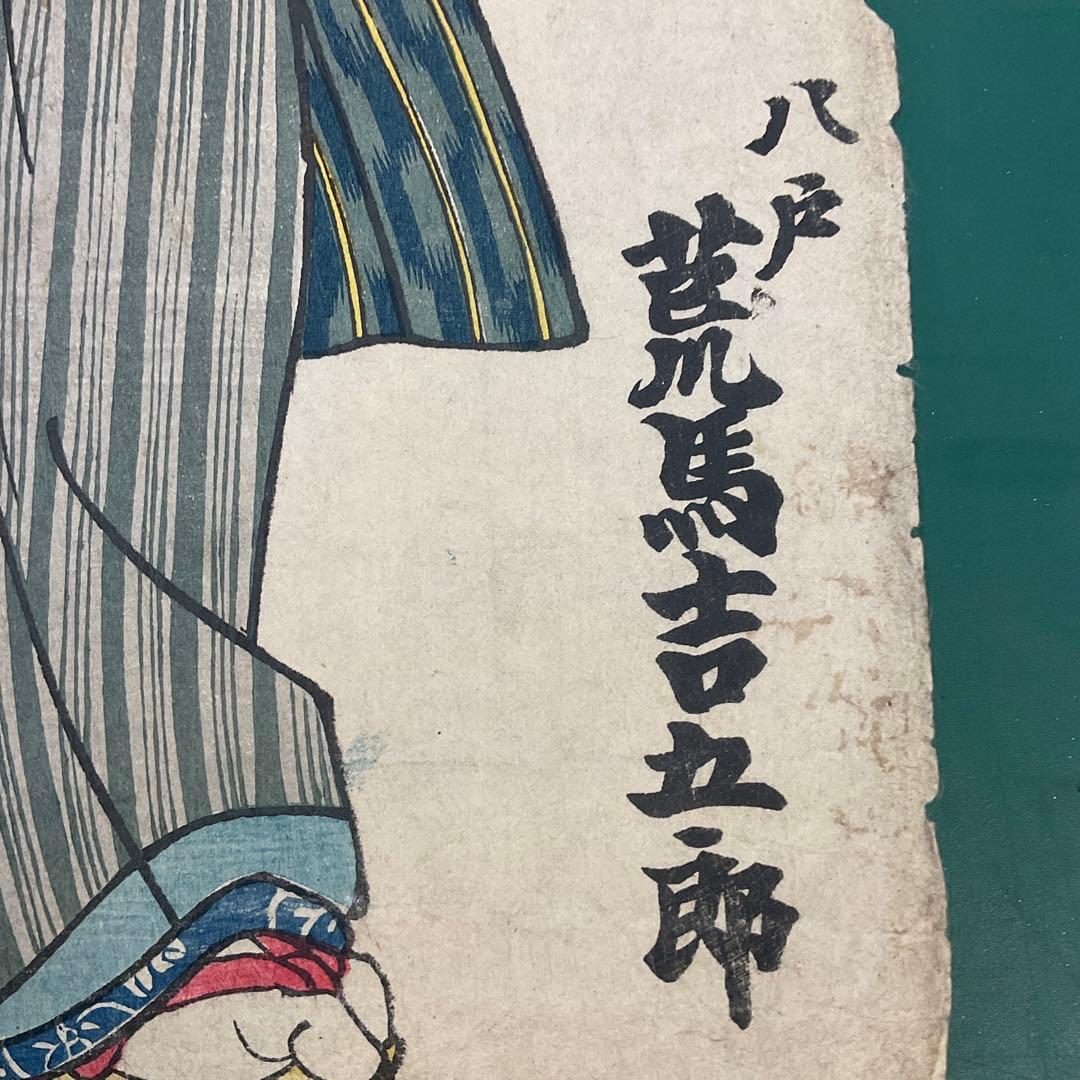 八戸
荒馬吉五郎